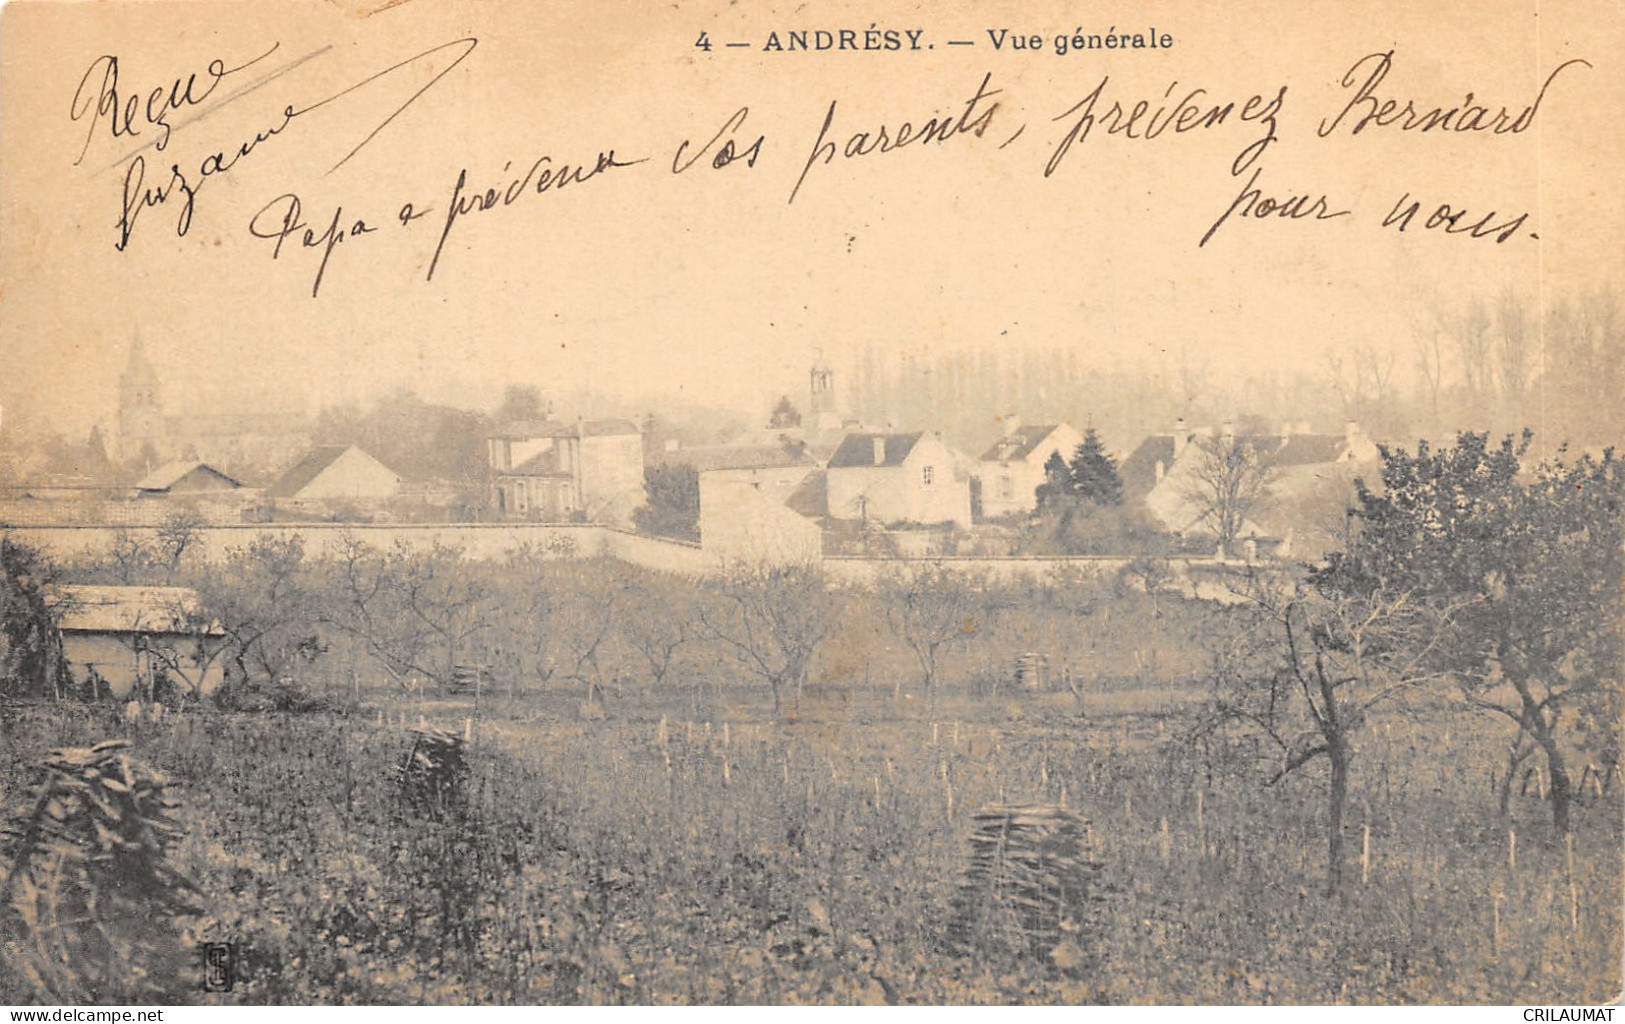 4 — ANDRÉSY. — Vue générale
Reçue
Suzanne
Papa a prévenu vos parents, prévenez Bernard
pour nous.
www.delcampe.net
CRILAUMAT